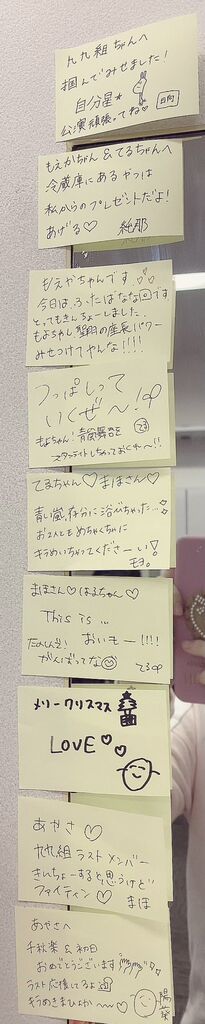 九九組ちゃんへ
掴んでみせました!
自分星★
公演頑張ってね♡
もえかちゃん & てるちゃんへ
冷蔵庫にあるやつは
私からのプレゼントだよ!
あげる♡ 純那
もえやちゃんです
今日は、ふたばななな回です
とってもきんちょーしました
みせつけてやんな!!!!
つっぱしって
いくぜ〜!
スタァライトしちゃっておくれ〜!!
てるちゃん♡まほさん♡
青い嵐、存分に浴びちゃった…
お2人ともめちゃくちゃに
キラめいちゃってくださーい!
もえ。
まほさん♡はるちゃん♡
This is …
たのしんで! おいもー!!!!
がんばってな
てる
メリークリスマス
LOVE♡♡
あやさ♡
九九組ラストメンバー
きんちょーすると思うけど
ファイティン♡ まほ
あやさへ
千秋楽 & 初日
おめでとうございます
ラスト応援してるよ
キラめきまひょか〜♡